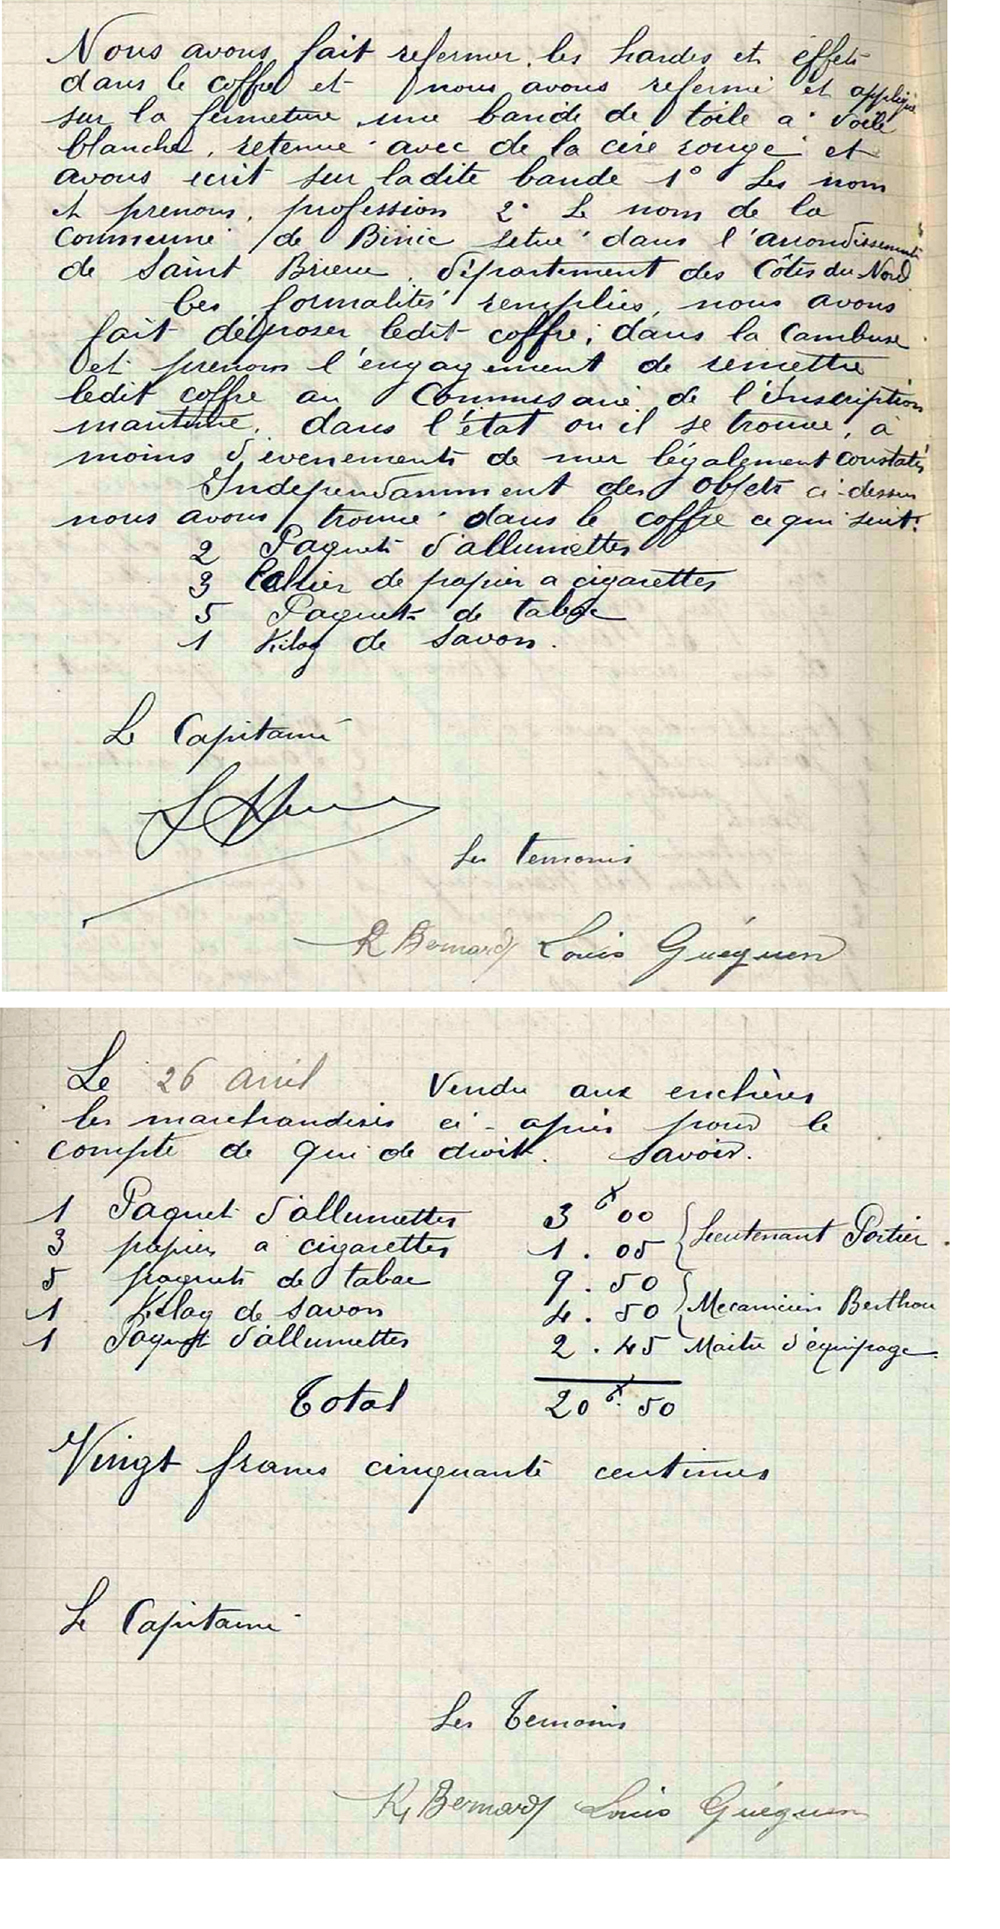 Nous avons fait refermer les hardes et effets
dans le coffre et nous avons refermé et appliqué
sur la fermeture une bande de toile a voile
blanche, retenue avec de la cire rouge et
avons ecrit sur ladite bande 1° Les nom
et prenom, profession 2° Le nom de la
Commune de Binic situé dans l'arrondissement
de Saint Brieuc, département des Côtes du Nord
Ces formalités remplies, nous avons
fait déposer ledit coffre, dans la Cambuse
et prenons l'engagement de remettre
ledit coffre au Commissaire de l'inscription
maritime, dans l'état ou il se trouve, a
moins d'evenements de mer légalement constatés
Independamment des objets ci-dessus
nous avons trouvé dans le coffre ce qui suit:
2 Paquets d'allumettes
3 Cahier de papier a cigarettes
5 Paquets de tabac
1 Kilog de savon.
Le Capitaine
Les temoins
R Bernard Louis Guéguen
Le 26 Avril Vendu aux enchères
les marchandises ci-après pour le
compte de qui de droit. Savoir.
1 Paquet d'allumettes 3 f 00
3 papier a cigarettes 1.05 Lieutenant Portier.
5 paquets de tabac 9.50
1 Kilog de savon 4.50 Mecanicien Berthou
1 Paquet d'allumettes 2.45 Maitre d'équipage.
Total 20 f. 50
Vingt francs cinquante centimes
Le Capitaine
Les Temoins
R Bernard Louis Guéguen